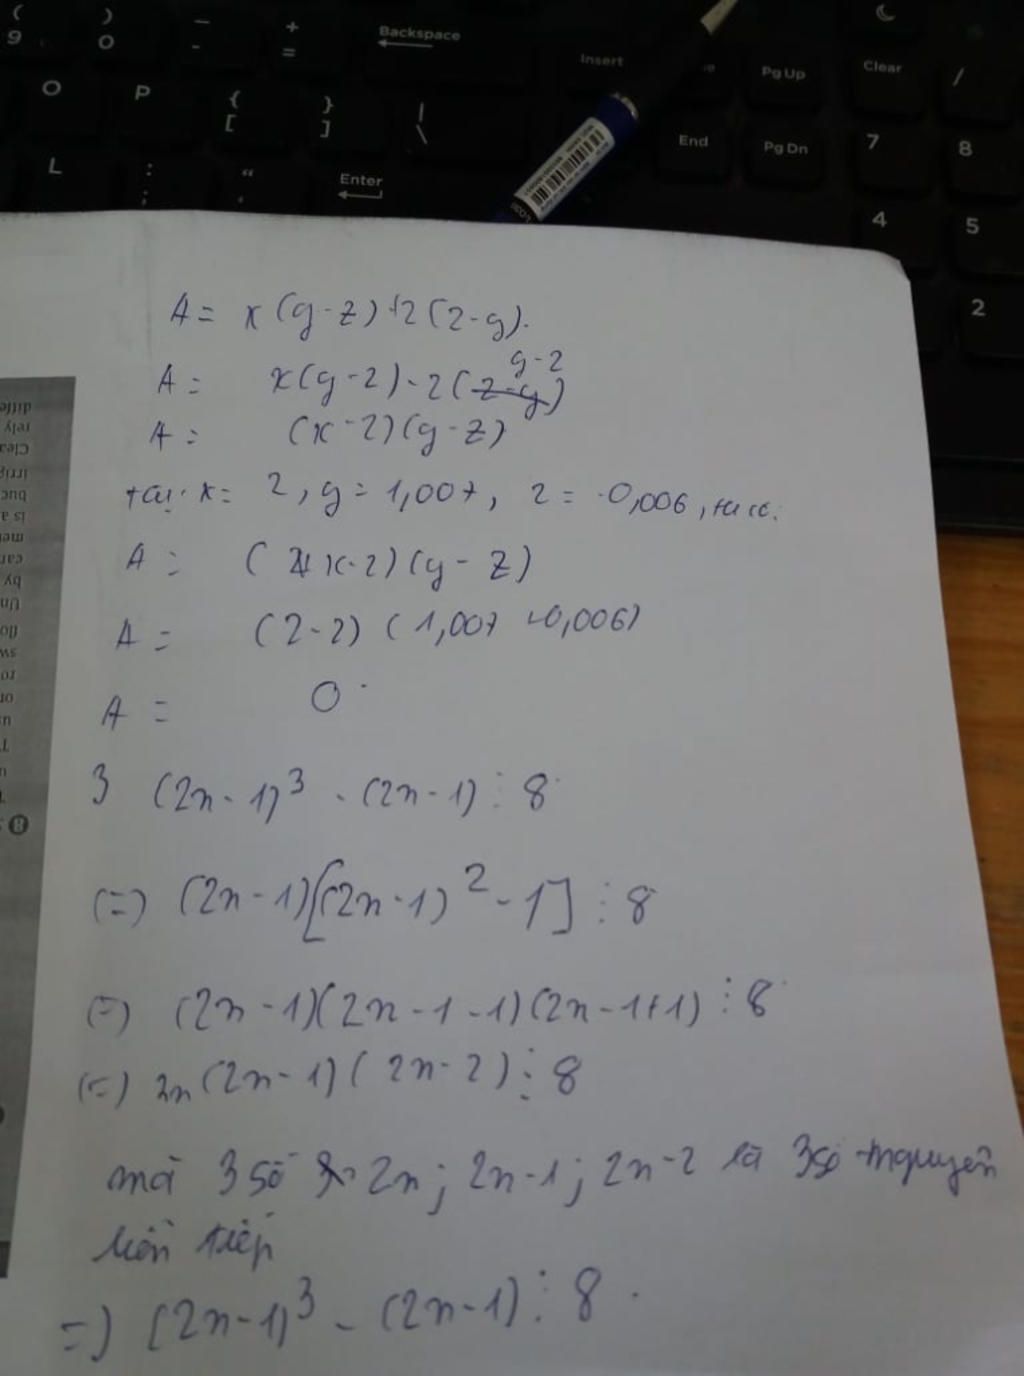 ( 9
) 0
_ -
+ =
Backspace
Insert
Pg Up
Clear
/
O
P
{ [
} ]
| \
End
Pg Dn
7
8
L
: ;
"
Enter
4
5
2
A = x(y-z)+2(z-y).
y-z
A = x(y-z)-2(z-y)
A = (x-2)(y-z)
tại x= 2, y= 1,007, z = -0,006, ta có:
A = (x-2)(y-z)
A = (2-2) (1,007 -0,006)
A = 0
3 (2n-1)³ - (2n-1) ⋮ 8
(=) (2n-1)[(2n-1)² -1] ⋮ 8
(=) (2n-1)(2n-1-1)(2n-1+1) ⋮ 8
(=) 2n(2n-1)(2n-2) ⋮ 8
mà 3 số 2n; 2n-1; 2n-2 là 3 số nguyên
liên tiếp
=) (2n-1)³ - (2n-1) ⋮ 8.